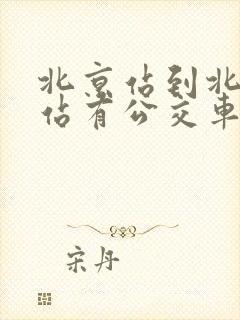 北京佔到北
佔有公交車
宋丹